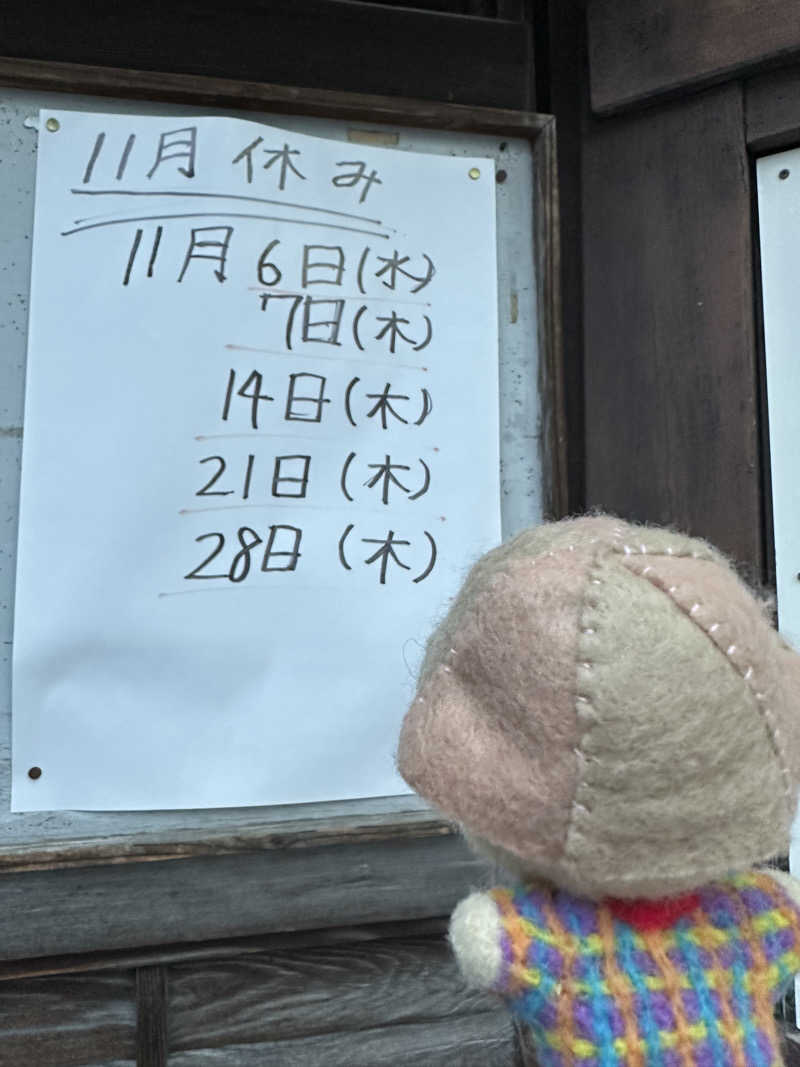 11月 休み
11月 6日(水)
7日(木)
14日(木)
21日(木)
28日(木)